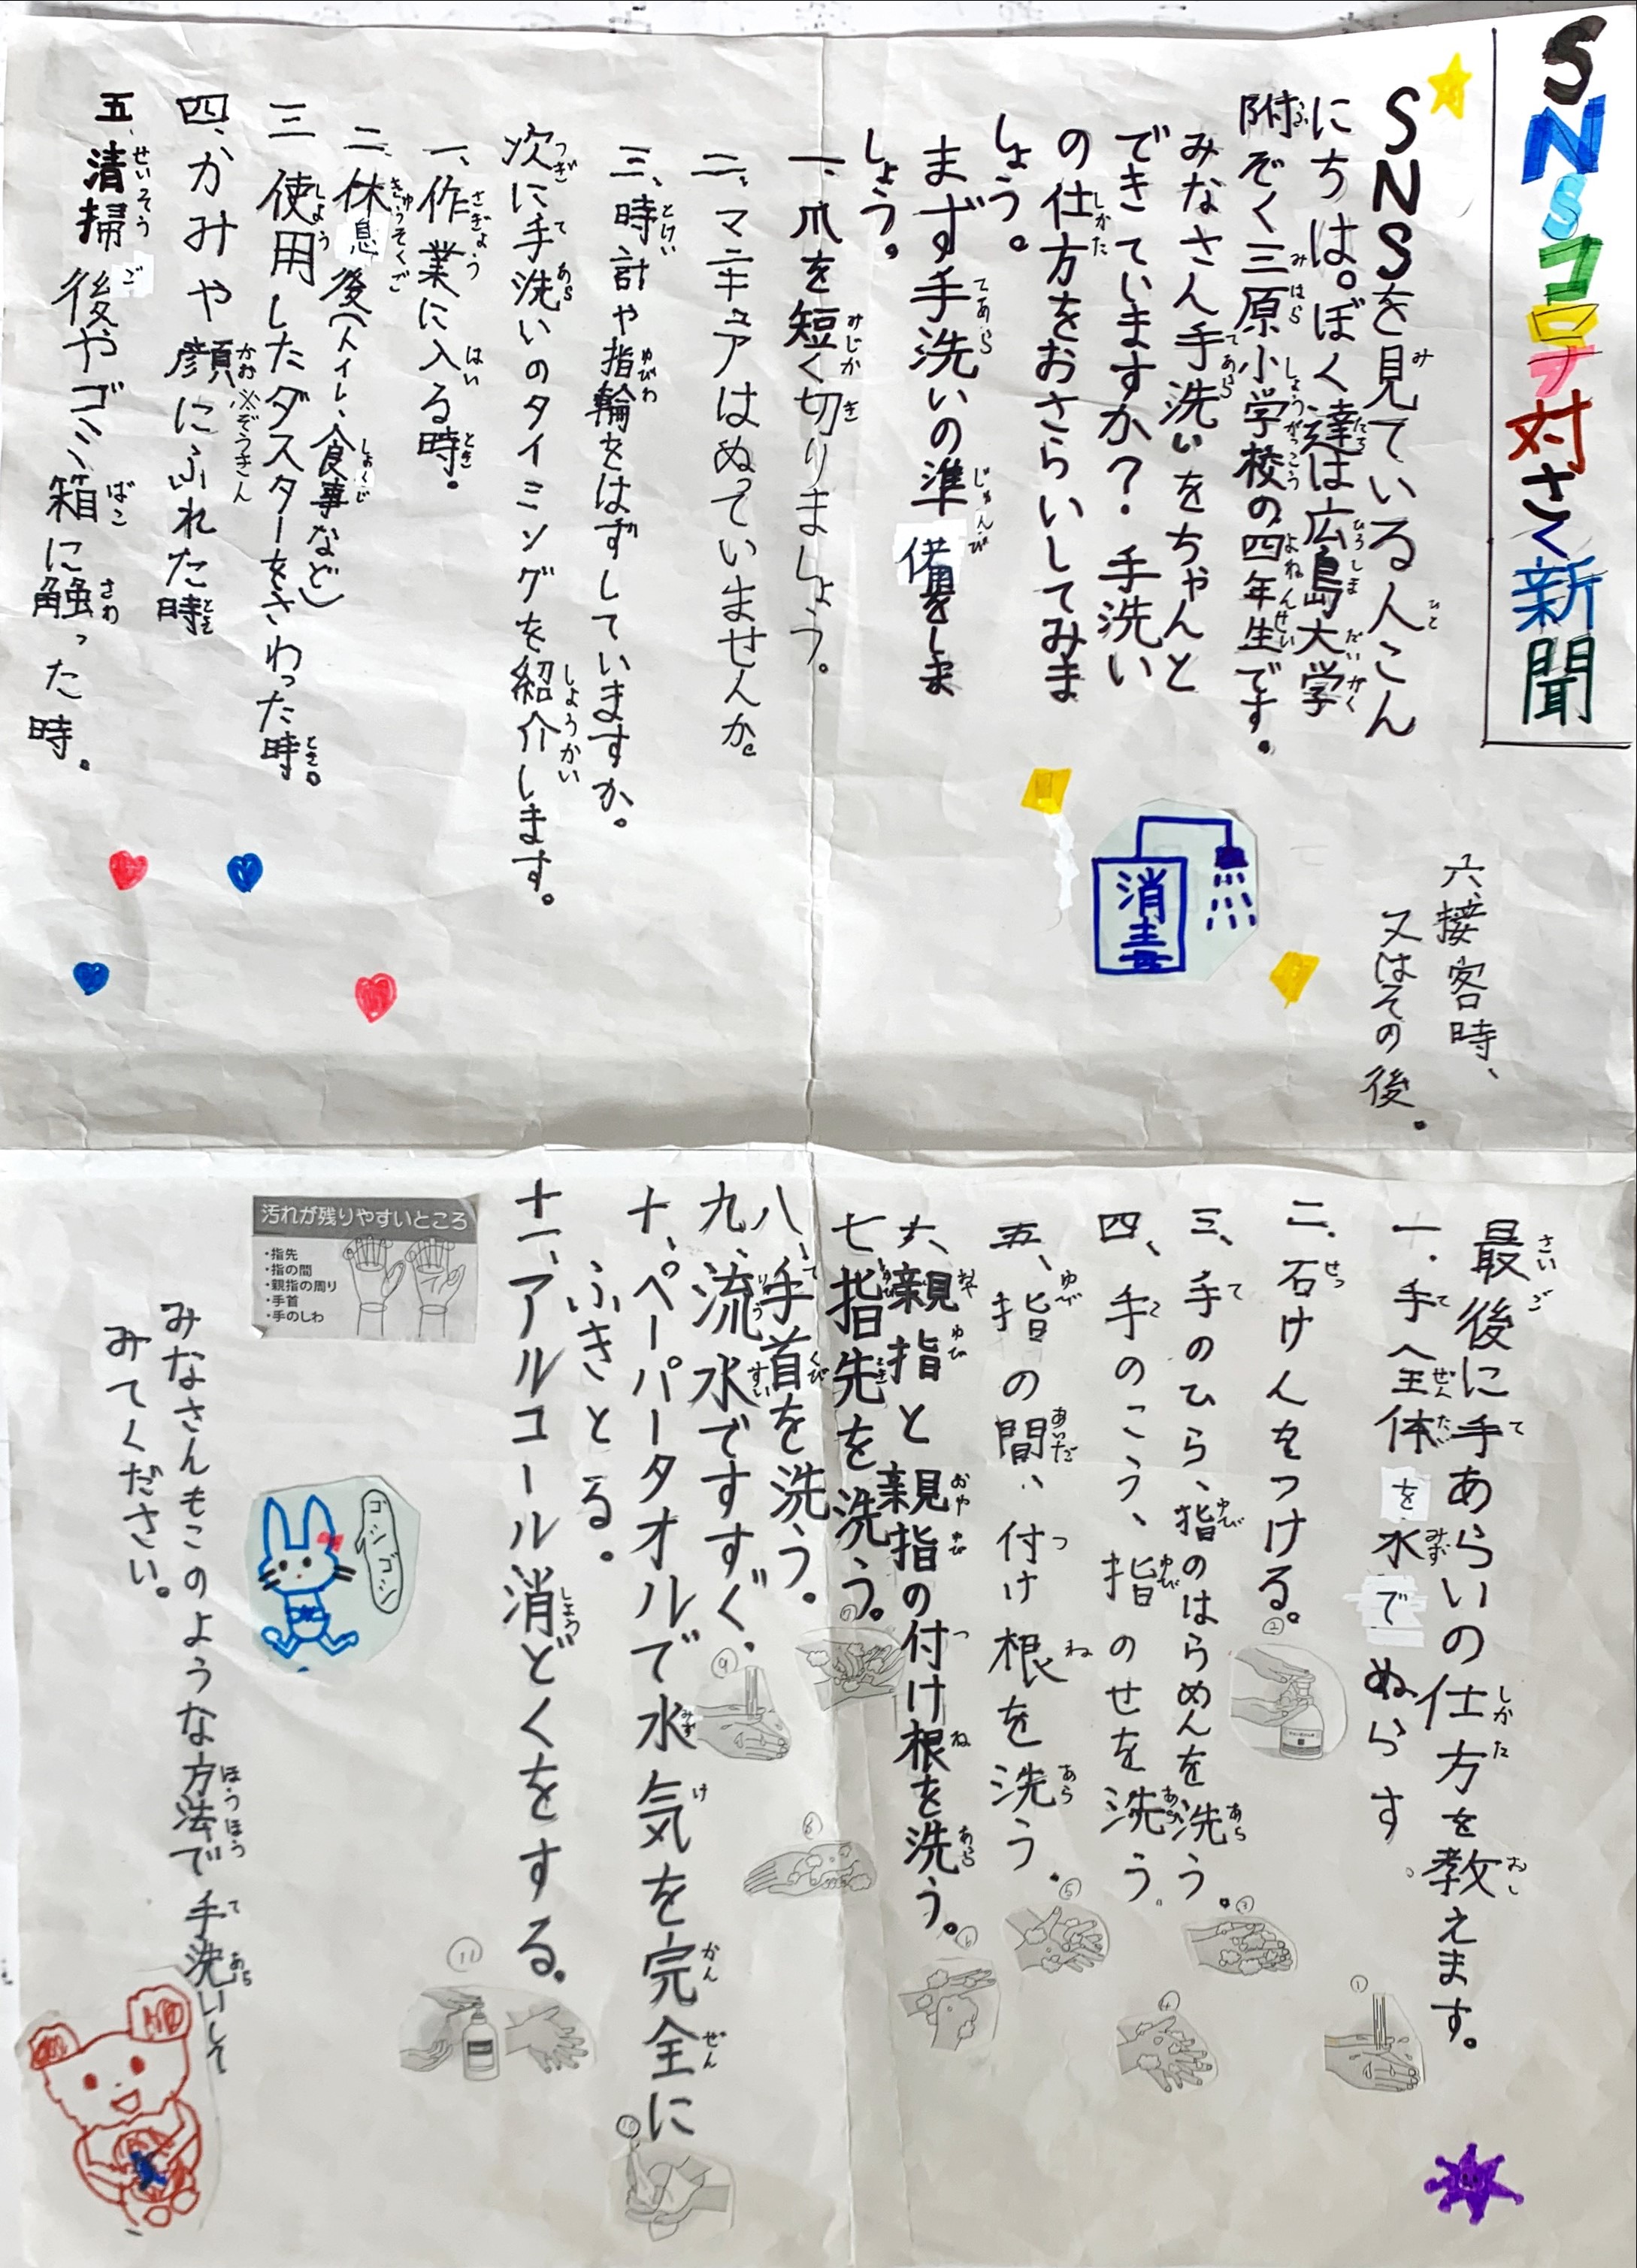 SNSコロナ対さく新聞
SNSを見ている人こん
にちは。ぼく達は広島大学
附ぞく三原小学校の四年生です。
みなさん手洗いをちゃんと
できていますか?.手洗い
の仕方をおさらいしてみま
しょう。
まず手洗いの準備をしま
しょう。
一、爪を短く切りましょう。
二、マニキュアはぬっていませんか。
三、時計や指輪をはずしていますか。
次に手洗いのタイミングを紹介します。
一、作業に入る時。
二、休息後(トイレ、食事など)
三 使用したダスターをさわった時。
※ぞうきん
四、かみや顔にふれた時
五、清掃後やゴミ箱に触った時。
六、接客時、
又はその後。
消毒
最後に手あらいの仕方を教えます。
一.手全体を水でぬらす。
二.石けんをつける。
三、手のひら、指のはらめんを洗う。
四、手のこう、指のせを洗う。
五、指の間、付け根を洗う.
六、親指と親指の付け根を洗う。
七、指先を洗う。
八、手首を洗う。
九、流水ですすぐ、
十、ペーパータオルで水気を完全に
ふきとる。
十一、アルコール消どくをする。
汚れが残りやすいところ
・指先
・指の間
・親指の周り
・手首
・手のしわ
ゴシゴシ
みなさんもこのような方法で手洗いして
みてください。
①
②
③
④
⑤
⑥
⑦
⑧
⑨
⑩
⑪